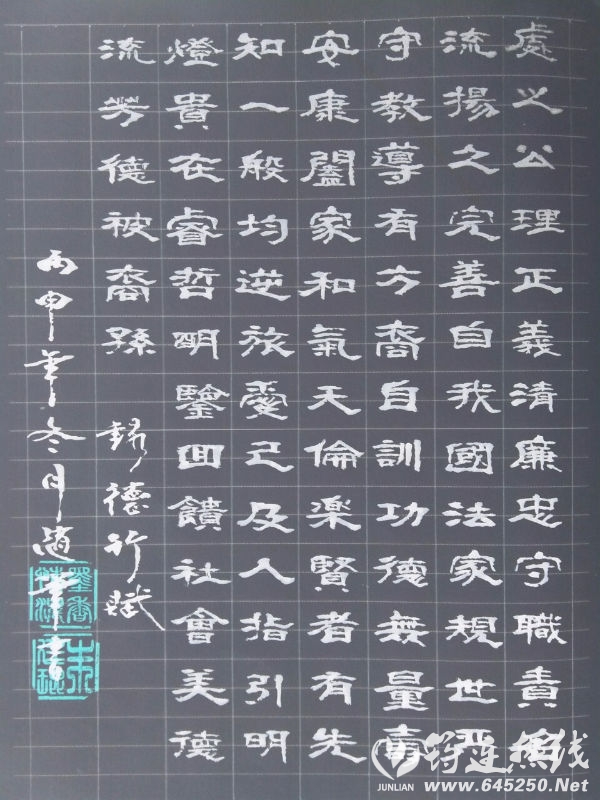 處之公理正義清廉忠守職責
流揚之完善自我國法家規世
守教導有方裔自訓功德無量壽
安康闔家和氣天倫楽賢者有先
知一般均逆旅愛己及人指引明
燈貴在睿哲明鑒回饋社會美德
流芳德被裔孫
德行賦
丙申年冬月書
筠连热线
JUNLIAN www.645250.Net